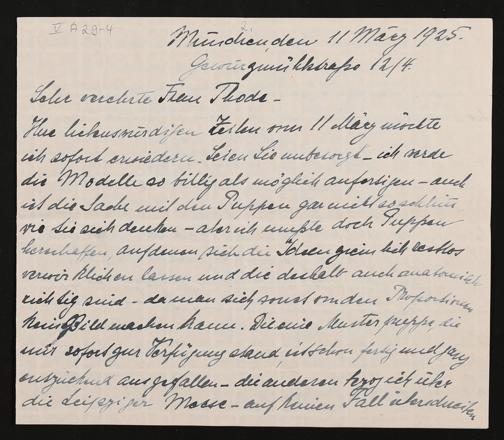 V A 29-4
München, den 11 März 1925.
Gewürzmühlstraße 12/4.
Sehr verehrte Frau Thode –
Ihre liebenswürdigen Zeilen vom 11 März möchte
ich sofort erwiedern. Seien Sie unbesorgt – ich werde
die Modelle so billig als möglich anfertigen – auch
ist die Sache mit den Puppen gar nicht so schlimm
wie Sie sich denken – aber ich mußte doch Puppen
herschaffen, auf denen sich die Ideen restlos
verwirklichen lassen und die deshalb auch anatomisch
richtig sind – da man sich sonst von den Proportionen
kein Bild machen kann. Die eine Musterpuppe die
mir sofort zur Verfügung stand, ist schon fertig und ganz
entzückend ausgefallen – die anderen bezog ich über
die Leipziger Messe – auf keinen Fall überschreiten